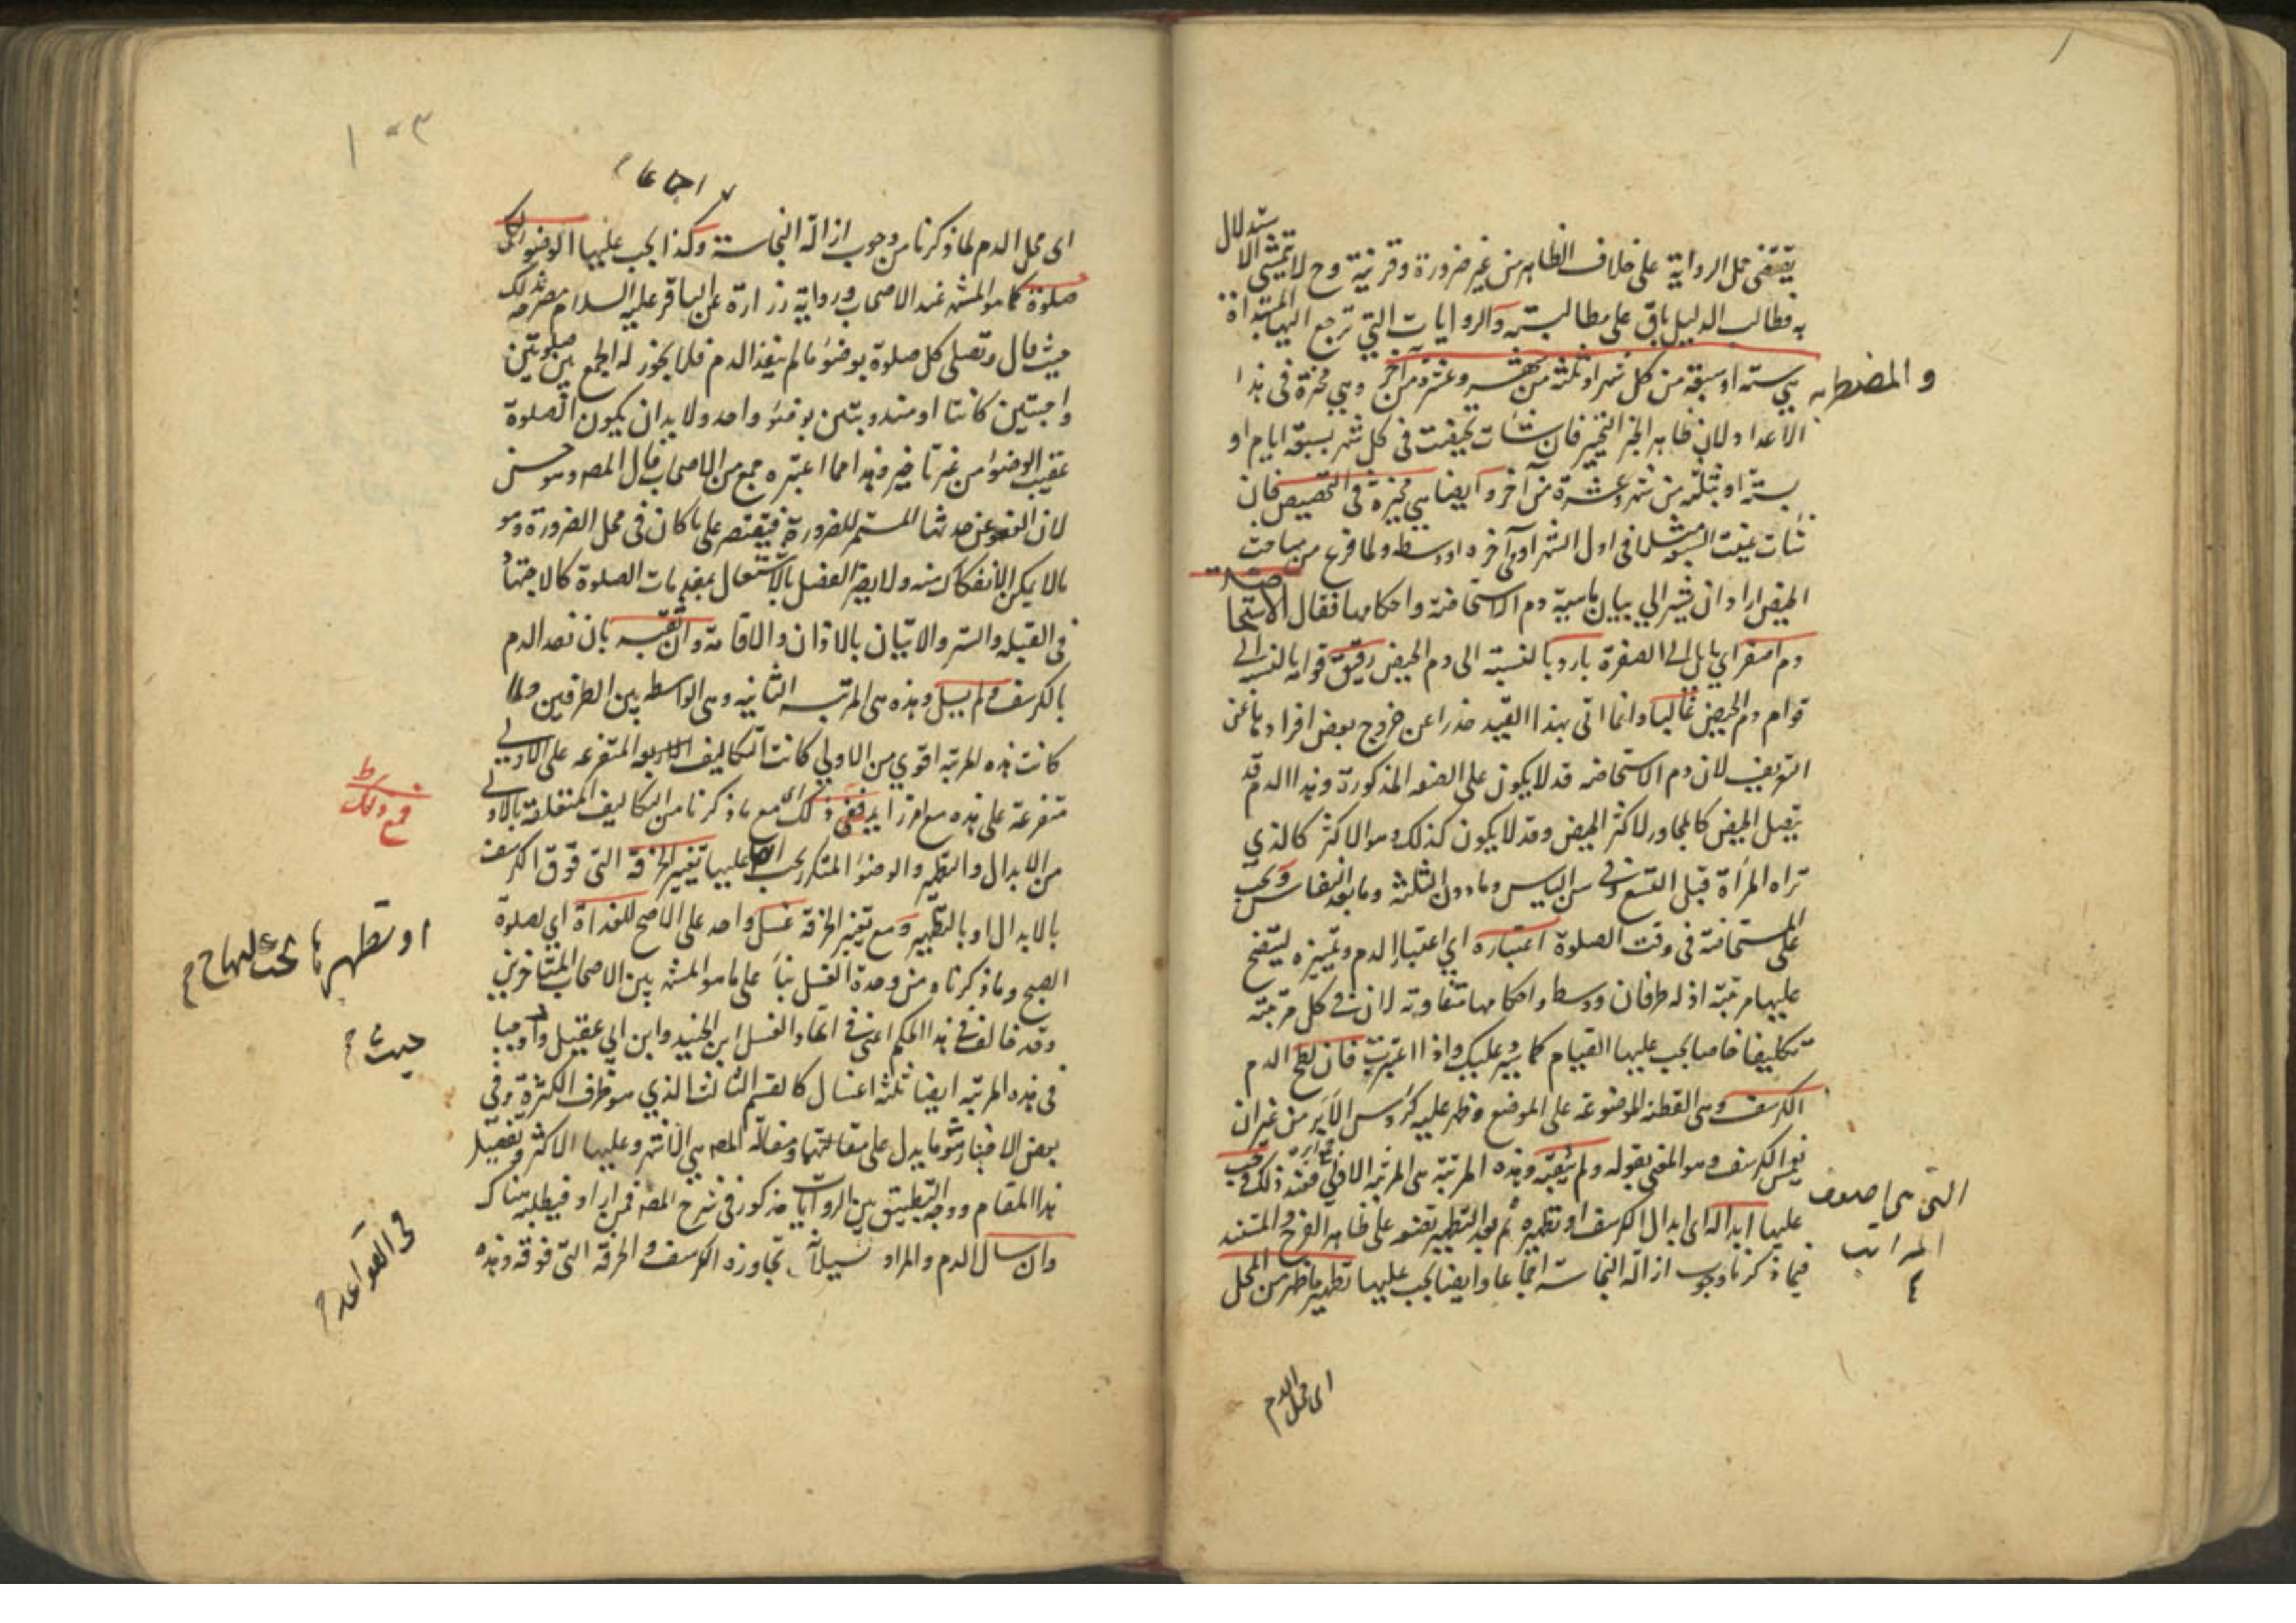 يقتضى حمل الرواية على خلاف الظاهر من غير ضرورة وقرينة وح لا يتمشى الاستدلال
به فطالب الدليل باق على مطالبته والروايات التي ترجع اليها المبتداة
والمضطربه
هي ستة او سبعة من كل شهر او ثلثة من شهر وعشرة من آخر وهي مخيرة في هذا
الاعداد لان ظاهر الخبر التخيير فان شئات تحيضت في كل شهر بسبعة ايام او
بستة او بثلثة من شهر وعشرة من آخر وايضا هي مخيرة في التخصيص فان
شئات عينت السبعة مثلا في اول الشهر او آخره او وسطه ولما فرغ من مباحث
الحيض اراد ان يشير الى بيان ماهية دم الاستحاضة واحكامها فقال الاستحاضة
دم اصفر اي مايل الى الصفرة بارد بالنسبة الى دم الحيض رقيق قوامه بالنسبة الى
قوام دم الحيض غالبا وانما اتى بهذا القيد حذرا عن خروج بعض افراد ها عن
التعريف لان دم الاستحاضه قد لا يكون على الصفه المذكورة وهذا الدم قد
يتصل الحيض كالمجاور لاكثر الحيض وقد لا يكون كذلك وهو الاكثر كالذي
تراه المرأة قبل التسع وفي سن الياس وما دون الثلثة وما بعد النفاس ويجب
على المستحاضة في وقت الصلوة اعتباره اي اعتبار الدم وتميزه ليتضح
عليها مرتبته اذ له طرفان ووسط واحكامها متفاوته لان في كل مرتبته
تكليفا خاصا يجب عليها القيام كما سيرد عليك واذا اعتبرت فان لطخ الدم
الكرسف وهي القطنة الموضوعة على الموضع وظهر عليه كرؤس الابر من غير ان
يغمس الكرسف وهو المعنى بقوله ولم يثقبه وهذه المرتبة هى المرتبة الاولى فعند ذلك يجب
التي هى اضعف
المراتب
عليها ابداله اى ابدال الكرسف او تطهيره ثم بعد التطهير تضعه على ظاهر الفرج والمستند
فيما ذكرنا وجوب ازالة النجاسة اجماعا وايضا يجب عليها تطهير ما ظهر من المحل
اى محل الدم
١٠٣
اجماعا
اى محل الدم لما ذكرنا من وجوب ازالة النجاسة وكذا يجب عليها الوضوء لكل
صلوة كما هو المشه عند الاصحاب ورواية زرارة عن الباقر عليه السلام مصرحه بذلك
حيث قال وتصلى كل صلوة بوضوء ما لم ينفذ الدم فلا يجوز له الجمع بين صلوتين
واجبتين كانتا او مندوبتين بوضوء واحد ولا بد ان يكون الصلوة
عقيب الوضوء من غير تاخير وهذا مما اعتبره جمع من الاصحاب قال المصه وهو حسن
لان العفو عن حدثها المستمر للضرورة فيقتصر على ما كان في محل الضرورة وهو
مالا يمكن الانفكاك منه ولا يضر الفصل بالاشتغال بمقدمات الصلوة كالاجتهاد
في القبله والستر والاتيان بالاذان والاقامة وان ثقبه بان نفد الدم
بالكرسف ولم يسل وهذه هى المرتبه الثانيه وهى الواسطه بين الطرفين ولما
كانت هذه المرتبة اقوى من الاولى كانت التكاليف الاربعه المتفرعه على الاولى
متفرعة على هذه مع امر زايد ففى ذلك اى مع ما ذكرنا من التكاليف المتعلقة بالاولى
فمع ذلك
من الابدال والتطهير والوضوء المتكرر يجب ايضا عليها تغيير الخرقة التي فوق الكرسف
او تطهيرها يجب عليها ح
بالابدال او بالتطهير ومع تغيير الخرقة غسل واحد على الاصح للغداة اي لصلوة
الصبح وما ذكرناه من وحدة الغسل بناء على ما هو المشه بين الاصحاب المتاخرين
وقد خالف في هذا الحكم اعنى في اتحاد الغسل ابن الجنيد وابن ابي عقيل واوجبا
حيث
في هذه المرتبه ايضا ثلثه اغسال كالقسم الثالث الذي هو طرف الكثرة وفي
بعض الاخبار ما يدل على مقالتهما ومقالة المصه هي الاشهر وعليها الاكثر وتفصيل
هذا المقام ووجه التطبيق بين الروايات مذكور في شرح المصه فمن اراد فيطلبه هناك
في القواعد
وان سال الدم والمراد بسيلانه تجاوزه الكرسف والخرقه التي فوقه وهذه